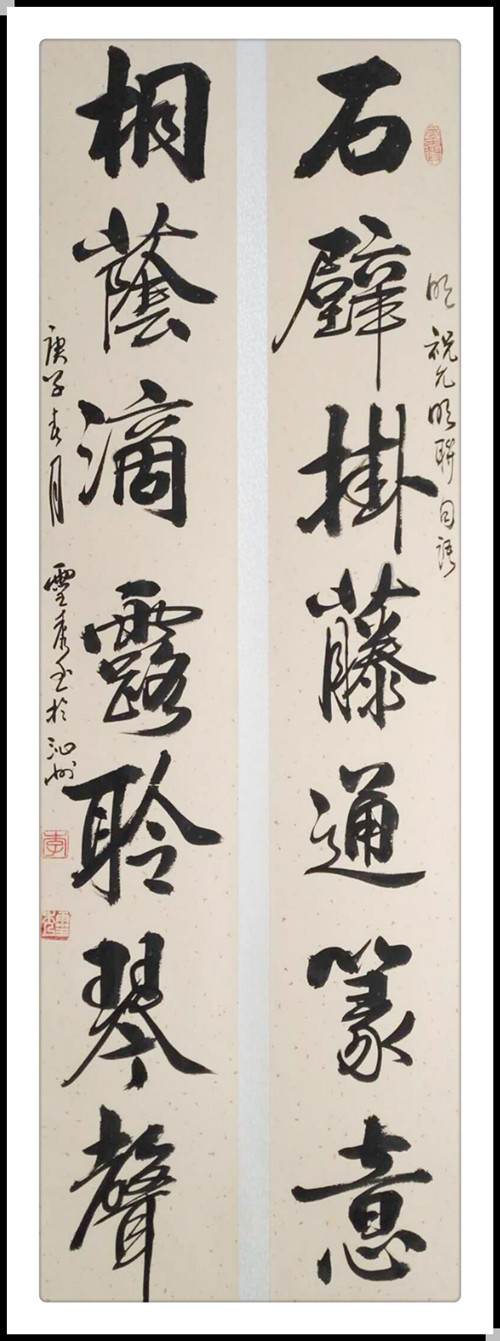 明祝允明聯句語
石壁掛藤通篆意
桐蔭滴露聆琴聲
庚子春月
雲秀書於沁州
李